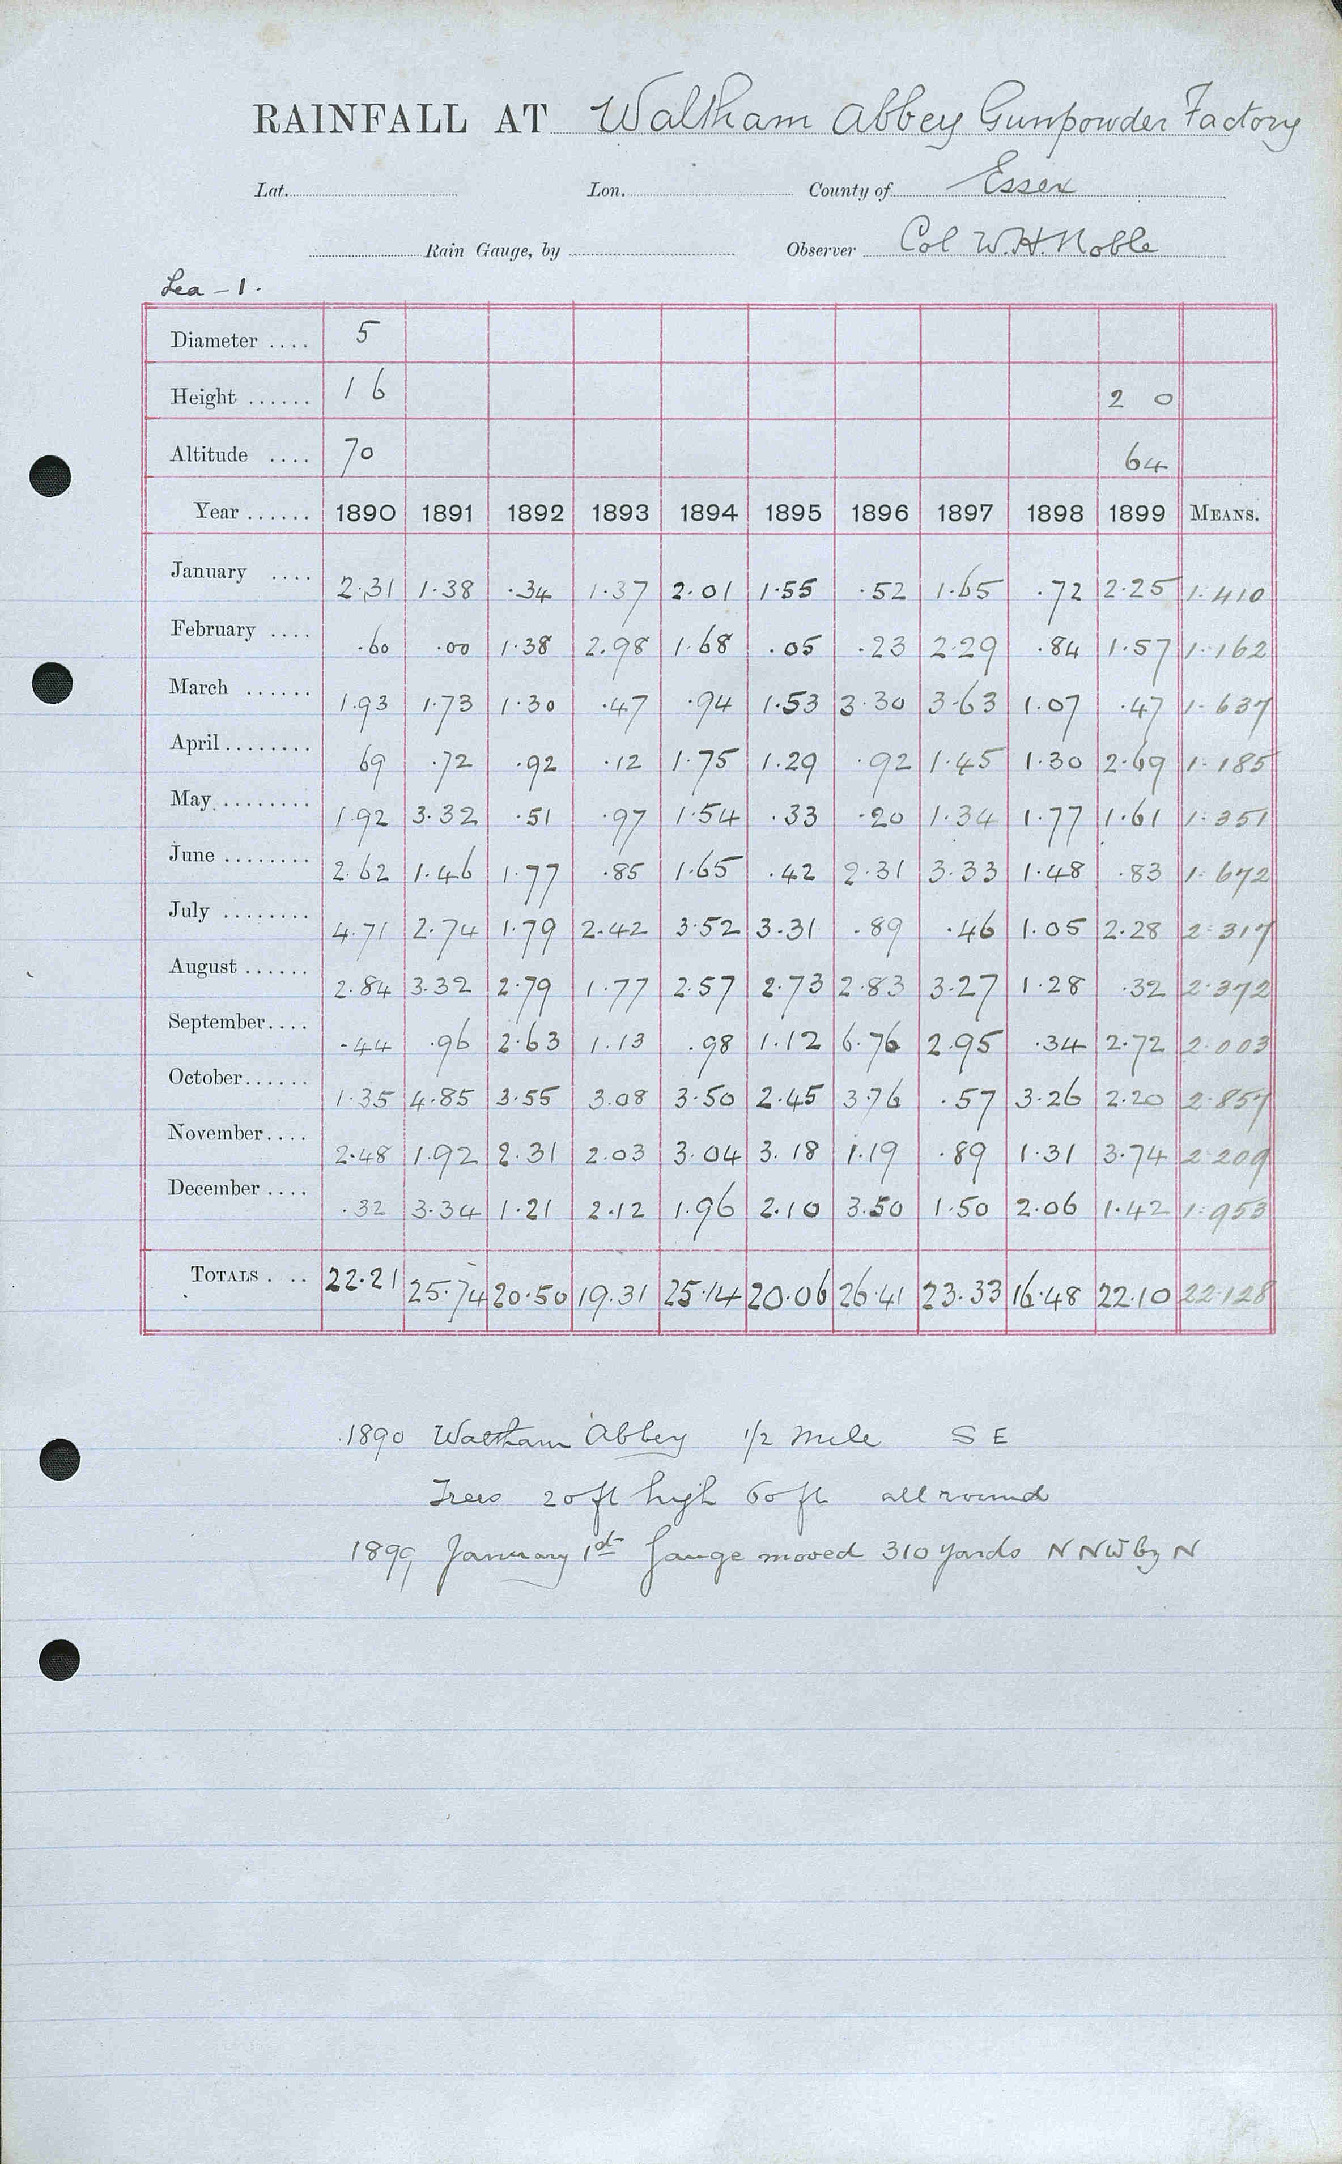 RAINFALL AT Waltham Abbey Gunpowder Factory
Lat. Lon. County of Essex
Rain Gauge, by Observer Col W.H. Noble
Lea - 1.
Diameter .... 5
Height ...... 1 6 2 0
Altitude .... 70 64
Year ...... 1890 1891 1892 1893 1894 1895 1896 1897 1898 1899 MEANS.
January .... 2.31 1.38 .34 1.37 2.01 1.55 .52 1.65 .72 2.25 1.410
February .... .60 .00 1.38 2.98 1.68 .05 .23 2.29 .84 1.57 1.162
March ...... 1.93 1.73 1.30 .47 .94 1.53 3.30 3.63 1.07 .47 1.637
April ........ 69 .72 .92 .12 1.75 1.29 .92 1.45 1.30 2.69 1.185
May ........ 1.92 3.32 .51 .97 1.54 .33 .20 1.34 1.77 1.61 1.351
June ........ 2.62 1.46 1.77 .85 1.65 .42 2.31 3.33 1.48 .83 1.672
July ........ 4.71 2.74 1.79 2.42 3.52 3.31 .89 .46 1.05 2.28 2.317
August ...... 2.84 3.32 2.79 1.77 2.57 2.73 2.83 3.27 1.28 .32 2.372
September.... .44 .96 2.63 1.13 .98 1.12 6.76 2.95 .34 2.72 2.003
October...... 1.35 4.85 3.55 3.08 3.50 2.45 3.76 .57 3.26 2.20 2.857
November.... 2.48 1.92 2.31 2.03 3.04 3.18 1.19 .89 1.31 3.74 2.209
December .... .32 3.34 1.21 2.12 1.96 2.10 3.50 1.50 2.06 1.42 1.953
TOTALS . .. 22.21 25.74 20.50 19.31 25.14 20.06 26.41 23.33 16.48 22.10 22.128
1890 Waltham Abbey 1/2 mile S E
Trees 20 ft high 60 ft all round
1899 January 1st Gauge moved 310 yards N NW by N